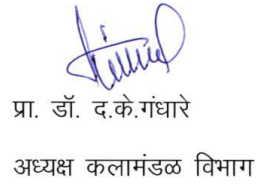 प्रा. डॉ. द.के.गंधारे
अध्यक्ष कलामंडळ विभाग